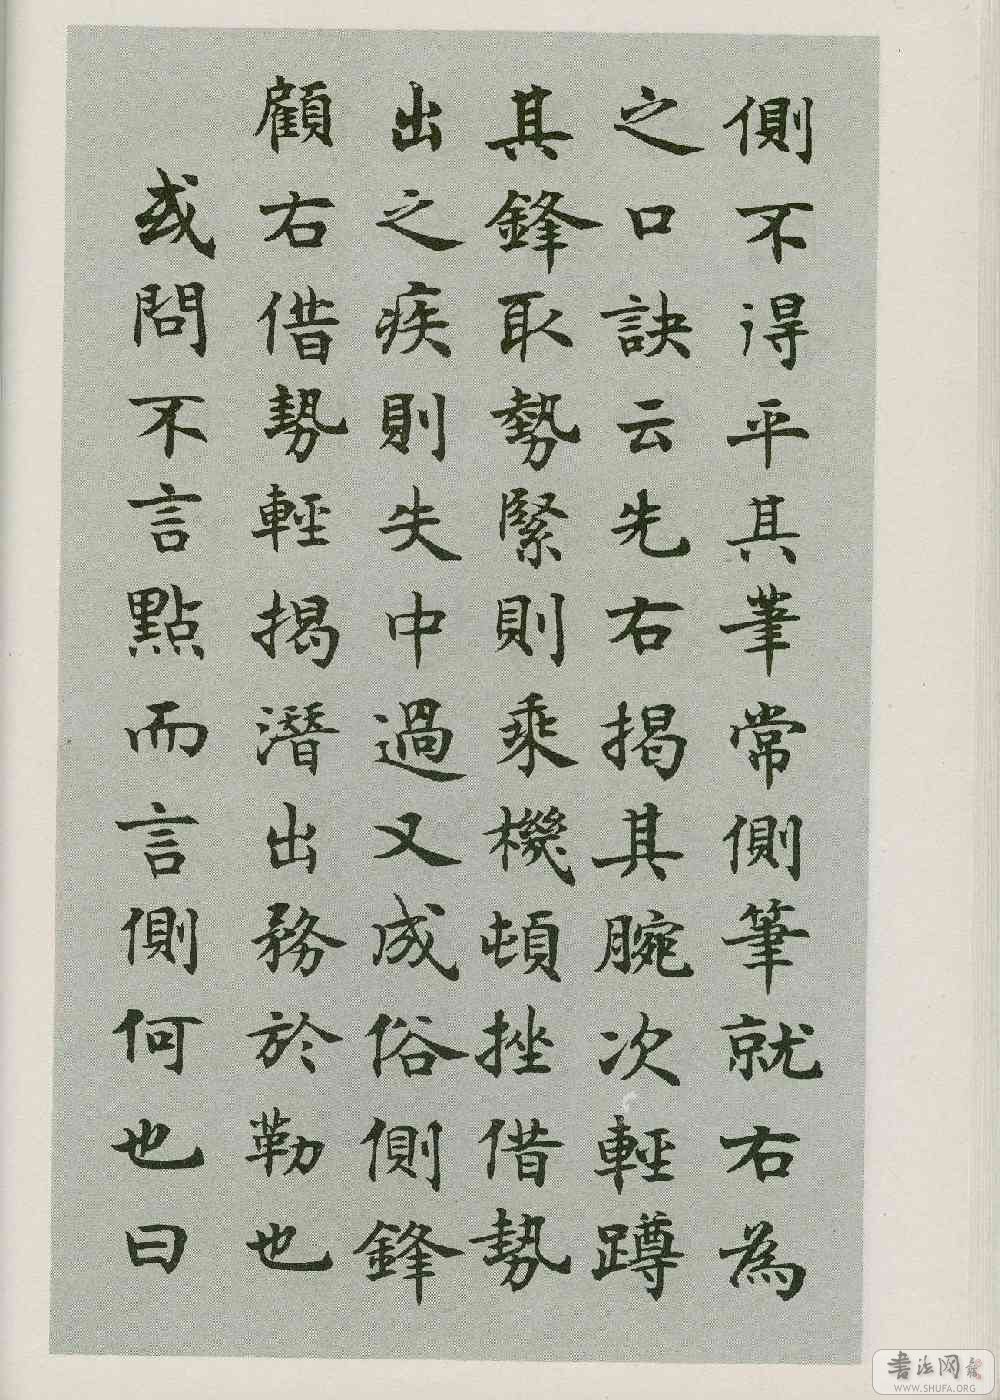 側不得平其筆常側筆就右為
之口訣云先右揭其腕次輕蹲
其鋒取勢緊則乘機頓挫借勢
出之疾則失中過又成俗側鋒
顧右借勢輕揭潛出務於勒也
或問不言點而言側何也曰
书法网
WWW.SHUFA.ORG